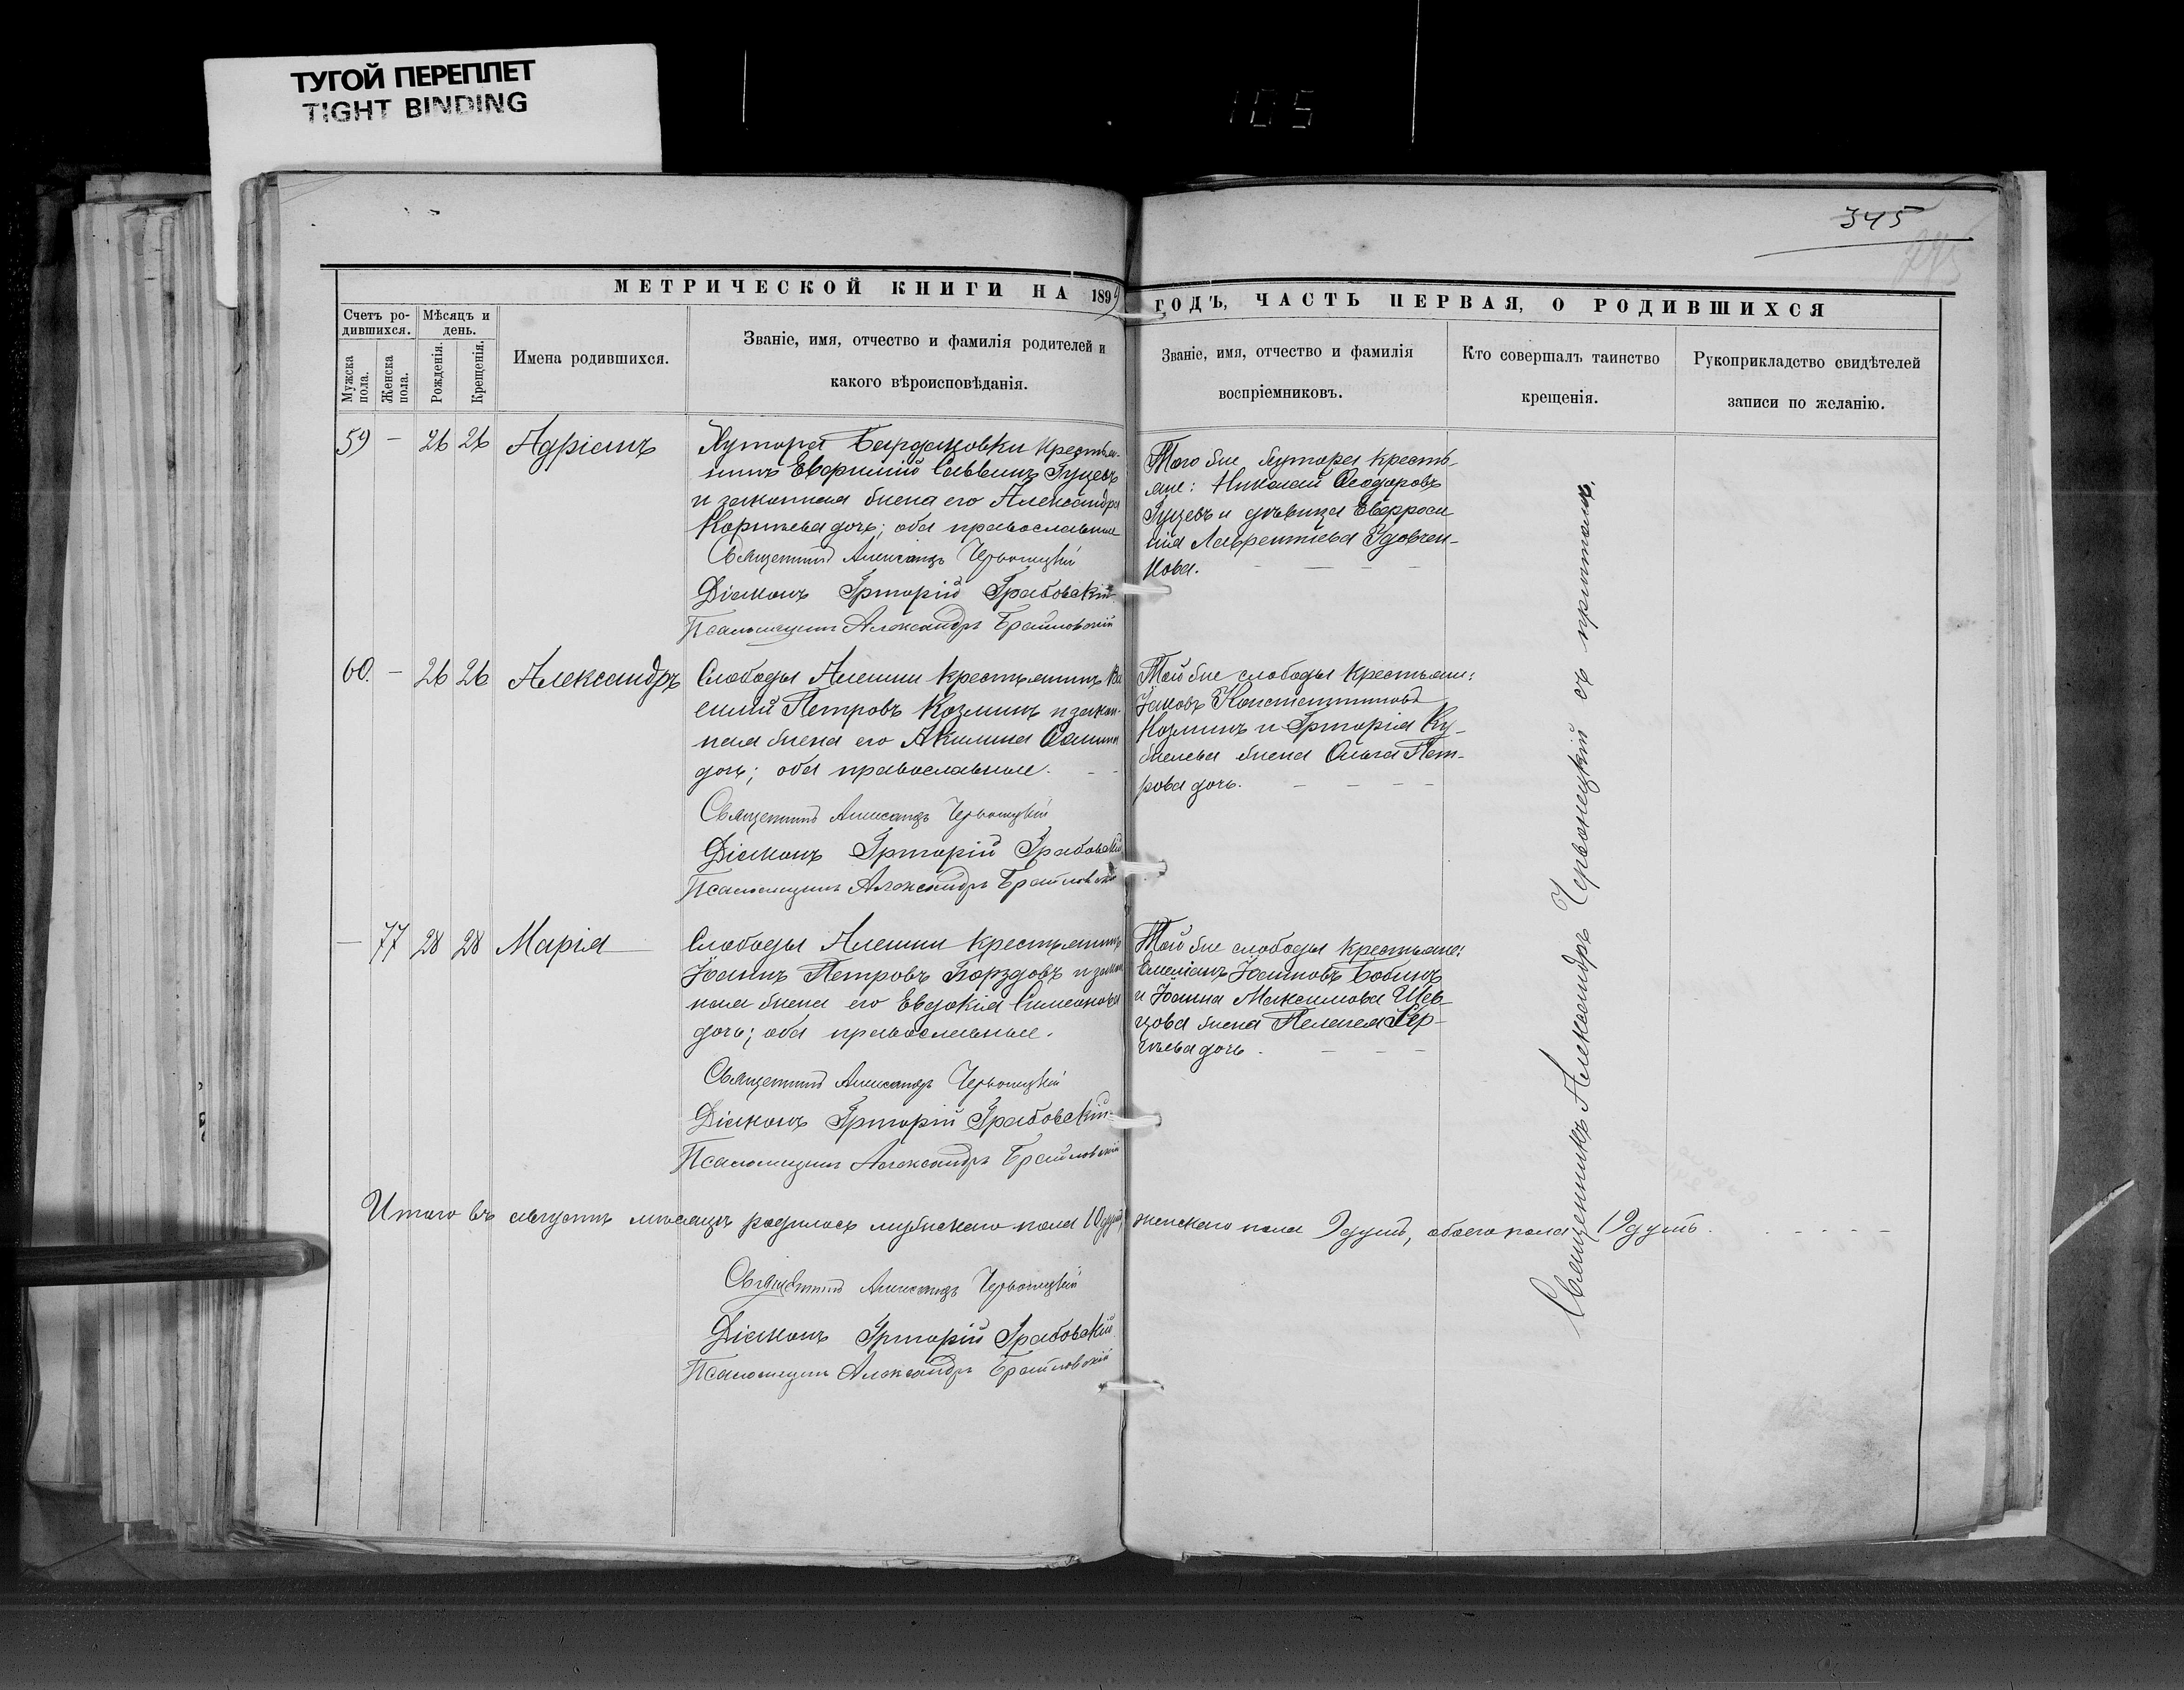 ТУГОЙ ПЕРЕПЛЕТ
TIGHT BINDING
105
345
МЕТРИЧЕСКОЙ КНИГИ НА 189
ГОДЪ, ЧАСТЬ ПЕРВАЯ, О РОДИВШИХСЯ
Счетъ ро-
дившихся.
Мѣсяцъ и
день.
Мужска
пола.
Женска
пола.
Рожденія.
Крещенія.
Имена родившихся.
Званіе, имя, отчество и фамилія родителей и
какого вѣроисповѣданія.
Званіе, имя, отчество и фамилія
воспріемниковъ.
Кто совершалъ таинство
крещенія.
Рукоприкладство свидѣтелей
записи по желанію.
59 - 26 26 Адріанъ
Хутора Бардаковки крестья-
нинъ Евфимій Саввинъ Гузевъ
и законная жена его Александра
Корнѣева дочь; оба православные
Священникъ Александръ Червонецкій
Діаконъ Григорій Грабовскій
Псаломщикъ Александръ Браиловскій
Того же хутора кресть-
яне: Николай Ѳеодоровъ
Гузевъ и дѣвица Евфроси
нія Лаврентіева Удовчен-
кова.
60. - 26 26 Александръ
Слободы Алешни крестьянинъ Ва
силій Петровъ Козминъ и закон-
ная жена его Акилина
дочь; оба православные.
Священникъ Александръ Червонецкій
Діаконъ Григорій Грабовскій
Псаломщикъ Александръ Браиловскій
Той же слободы крестьяни:
Іаковъ Константиновъ
Козминъ и Григорія Ку-
желева жена Ольга Пет-
рова дочь.
- 77 28 28 Марія
Слободы Алешни крестьянинъ
Іоаннъ Петровъ Борздовъ и закон
ная жена его Евдокія Симеонова
дочь; оба православные.
Священникъ Александръ Червонецкій
Діаконъ Григорій Грабовскій
Псаломщикъ Александръ Браиловскій
Той же слободы крестьяне:
Емеліанъ Іоанновъ Бобинъ
и Іоанна Максимова Шев-
цова жена Пелагея Сер-
гѣева дочь.
Священникъ Александръ Червонецкій съ причтомъ.
Итого въ августѣ мѣсяцѣ родилось мужскаго пола 10 душъ, женскаго пола 9 душъ, обоего пола 19 душъ.
Священникъ Александръ Червонецкій
Діаконъ Григорій Грабовскій
Псаломщикъ Александръ Браиловскій